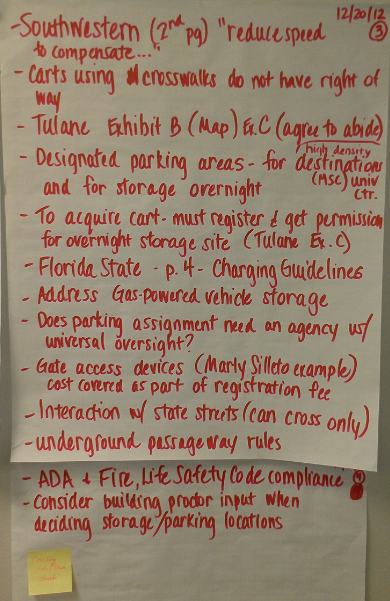 12/20/12
③
- Southwestern (2nd pg) "reduce speed
to compensate..."
- Carts using crosswalks do not have right of
way
- Tulane Exhibit B (Map) Ex. C (agree to abide)
- Designated parking areas - for high density destinations
(MSC) univ
ctr.
and for storage overnight
- To acquire cart - must register & get permission
for overnight storage site (Tulane Ex. C)
- Florida State - p. 4 - Charging Guidelines
- Address Gas-powered vehicle storage
- Does parking assignment need an agency w/
universal oversight?
- Gate access devices (Marty Silleto example)
cost covered as part of registration fee
- Interaction w/ state streets (can cross only)
- underground passageway rules
- ADA & Fire, Life Safety Code compliance
- Consider building proctor input when
deciding storage/parking locations